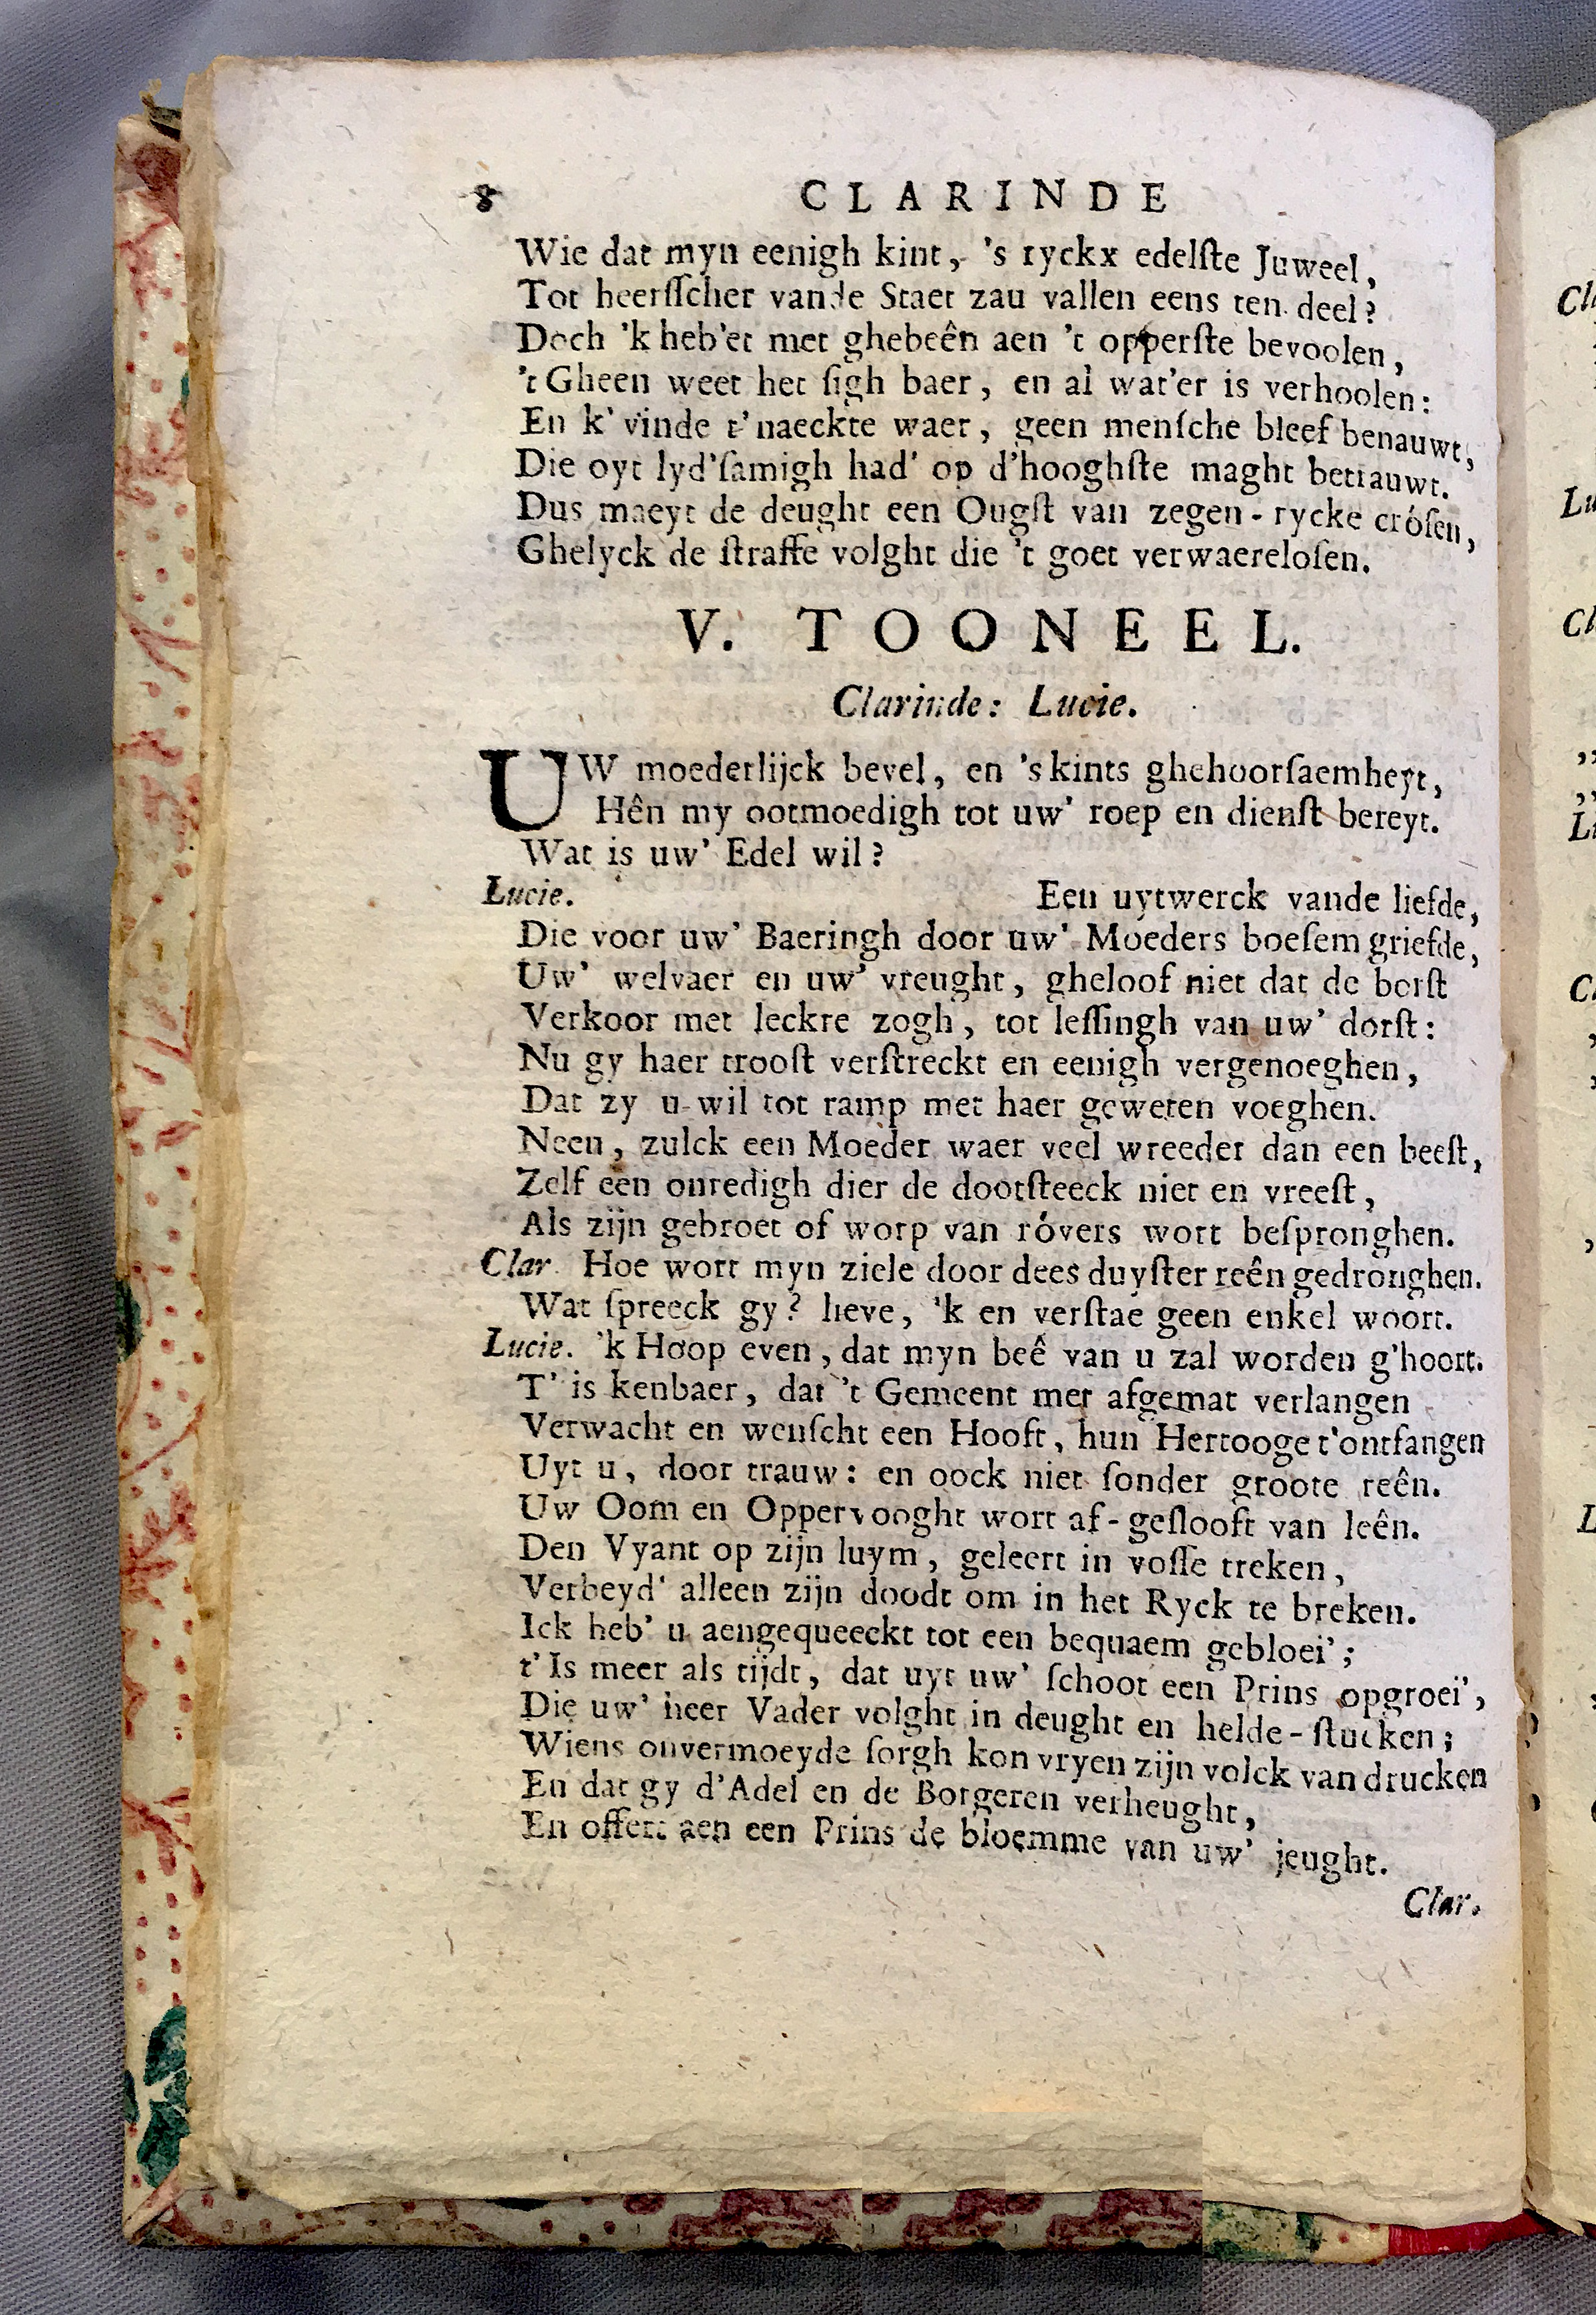 8 CLARINDE
Wie dat myn eenigh kint, 's ryckx edelſte Juweel,
Tot heerſſcher vande Staet zau vallen eens ten deel?
Doch 'k heb'et met ghebeên aen 't opperſte bevoolen,
't Gheen weet het ſigh baer, en al wat'er is verhoolen:
En k' vinde t'naeckte waer, geen menſche bleef benauwt,
Die oyt lyd'ſamigh had' op d'hooghſte maght betrauwt.
Dus maeyt de deught een Ougſt van zegen-rycke cróſen,
Ghelyck de ſtraffe volght die 't goet verwaereloſen.
V. TOONEEL.
Clarinde: Lucie.
UW moederlijck bevel, en 's kints ghehoorſaemheyt,
Hên my ootmoedigh tot uw' roep en dienſt bereyt.
Wat is uw' Edel wil?
Lucie. Een uytwerck vande liefde,
Die voor uw' Baeringh door uw' Moeders boeſem griefde,
Uw' welvaer en uw' vreught, gheloof niet dat de borſt
Verkoor met leckre zogh, tot leſſingh van uw' dorſt:
Nu gy haer trooſt verſtreckt en eenigh vergenoeghen,
Dat zy u wil tot ramp met haer geweten voeghen.
Neen, zulck een Moeder waer veel wreeder dan een beeſt,
Zelf een onredigh dier de dootſteeck niet en vreeſt,
Als zijn gebroet of worp van róvers wort beſpronghen.
Clar. Hoe wort myn ziele door dees duyſter reên gedronghen.
Wat ſpreeck gy? lieve, 'k en verſtae geen enkel woort.
Lucie. 'k Hoop even, dat myn beê van u zal worden g'hoort.
T' is kenbaer, dat 't Gemeent met afgemat verlangen
Verwacht en wenſcht een Hooft, hun Hertooge t'ontfangen
Uyt u, door trauw: en oock niet ſonder groote reên.
Uw Oom en Oppervooght wort af-geſlooft van leên.
Den Vyant op zijn luym, geleert in voſſe treken,
Verbeyd' alleen zijn doodt om in het Ryck te breken.
Ick heb' u aengequeeckt tot een bequaem gebloei';
t'Is meer als tijdt, dat uyt uw' ſchoot een Prins opgroei',
Die uw' heer Vader volght in deught en helde-ſtucken;
Wiens onvermoeyde ſorgh kon vryen zijn volck van drucken
En dat gy d'Adel en de Borgeren verheught,
En offert aen een Prins de bloemme van uw' jeught.
Clar.